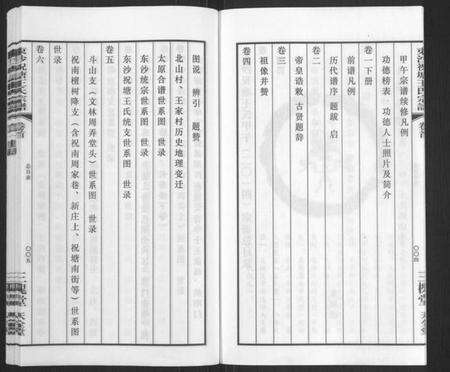 東沙祝塘王氏宗譜
卷首
〇〇四
三槐堂
甲午宗谱续修凡例
功德榜表　功德人士照片及简介
卷一下册
前谱凡例
历代谱序　题跋　启
卷二
帝皇诰敕　古贤题辞
卷三
祖像并赞
卷四
图说　辨引　题赞
北山村、王家村历史地理变迁
太原合谱世系图　世录
东沙统宗世系图　世录
东沙祝塘王氏统支世系图　世录
卷五
斗山支（文林周弄堂头）世系图　世录
祝南檀树降支（含祝南周家巷、新庄上、祝塘南街等）世系图
世录
卷六
東沙祝塘王氏宗譜
卷首
总目录
〇〇五
三槐堂